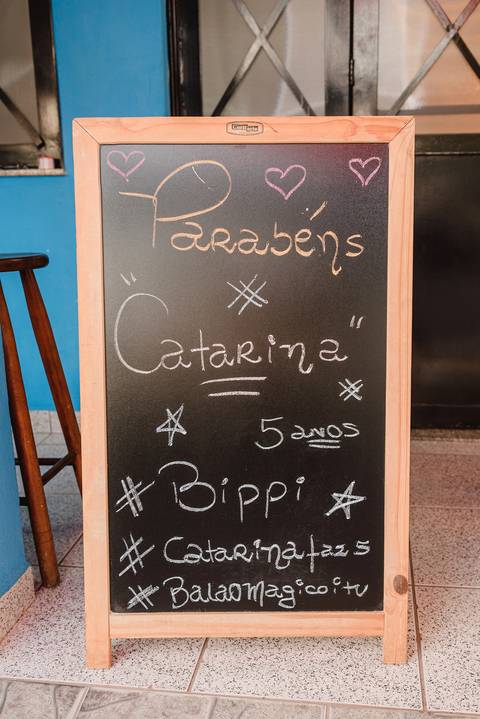 Parabéns
"Catarina"
5 anos
# Bippi
# Catarinafaz5
# Balaomagicoitu